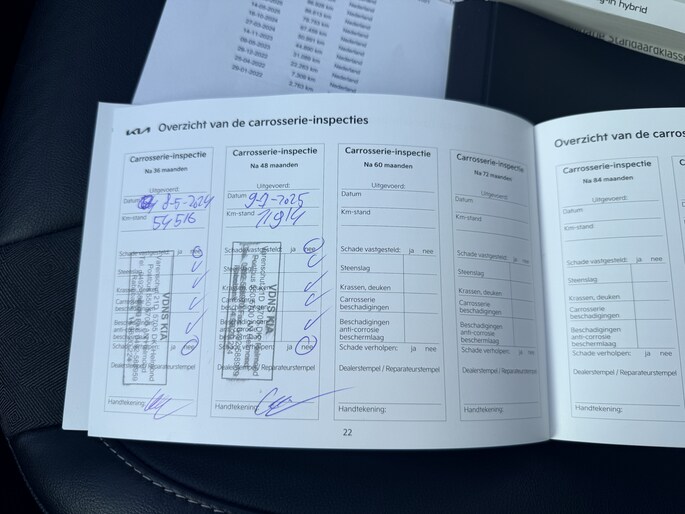 g-in hybrid
Standaardklasse
14-11-2023
Nederland
22.263 km Nederland
7.308 km Nederland
2.763 km Nederland
KIA Overzicht van de carrosserie-inspecties
Carrosserie-inspectie
Na 36 maanden
Uitgevoerd:
Datum 8-5-2024
Km-stand 54516
Schade vastgesteld: ja nee
Steenslag
Krassen, deuken
Carrosserie
beschadigingen
Beschadigingen
anti-corrosie
beschermlaag
Schade verholpen: ja nee
Dealerstempel / Reparateurstempel
VDNS KIA
Handtekening:
Carrosserie-inspectie
Na 48 maanden
Uitgevoerd:
Datum 9-7-2025
Km-stand
Schade vastgesteld: ja nee
Steenslag
Krassen, deuken
Carrosserie
beschadigingen
Beschadigingen
anti-corrosie
beschermlaag
Schade verholpen: ja nee
Dealerstempel / Reparateurstempel
VDNS KIA
Handtekening:
Carrosserie-inspectie
Na 60 maanden
Uitgevoerd:
Datum
Km-stand
Schade vastgesteld: ja nee
Steenslag
Krassen, deuken
Carrosserie
beschadigingen
Beschadigingen
anti-corrosie
beschermlaag
Schade verholpen: ja nee
Dealerstempel / Reparateurstempel
Handtekening:
Carrosserie-inspectie
Na 72 maanden
Uitgevoerd:
Datum
Km-stand
Schade vastgesteld: ja nee
Steenslag
Krassen, deuken
Carrosserie
beschadigingen
Beschadigingen
anti-corrosie
beschermlaag
Schade verholpen: ja nee
Dealerstempel / Reparateurstempel
Handtekening:
22
Overzicht van de carros
Carrosserie-inspectie
Na 84 maanden
Uitgevoerd:
Datum
Km-stand
Schade vastgesteld: ja nee
Steenslag
Krassen, deuken
Carrosserie
beschadigingen
Beschadigingen
anti-corrosie
beschermlaag
Schade verholpen: ja nee
Dealerstempel / Reparateurstempel
Handtekening: